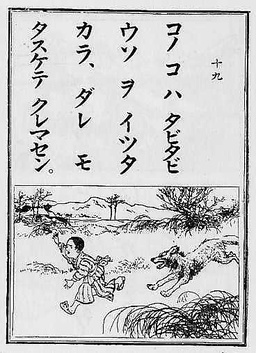 十九
コノ コハ タビタビ
ウソ ヲ イツタ
カラ、ダレ モ
タスケテ クレマセン。